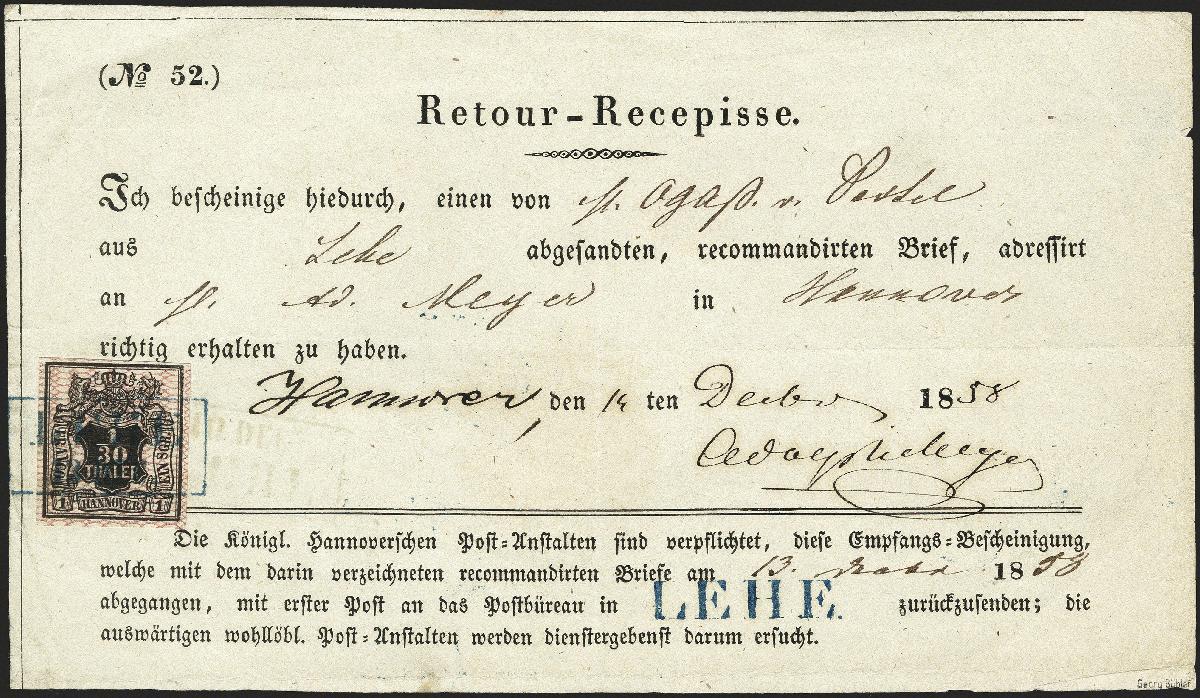 (№ 52.)
Retour-Recepisse.
Ich bescheinige hiedurch, einen von H. v.
aus Lehe abgesandten, recommandirten Brief, adressirt
an H. Ad. Meyer in Hannover
richtig erhalten zu haben.
Hannover, den 14 ten Decbr 1858
Adolph Meyer
1
30
THALER
HANNOVER
1 1
EIN SGR
Die Königl. Hannoverschen Post-Anstalten sind verpflichtet, diese Empfangs-Bescheinigung,
welche mit dem darin verzeichneten recommandirten Briefe am 13. 1858
abgegangen, mit erster Post an das Postbüreau in LEHE. zurückzusenden; die
auswärtigen wohllöbl. Post-Anstalten werden dienstergebenst darum ersucht.